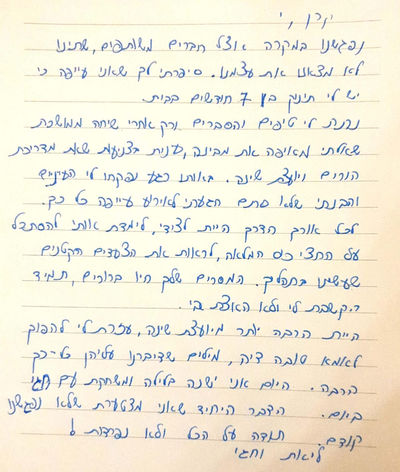 קרן,
נפגשנו במקרה אצל חברים משותפים, שתינו
לא מצאנו את עצמנו. סיפרתי לך שאני עייפה כי
יש לי תינוק בן 7 חודשים בבית.
נתת לי טיפים והסברים ורק אחרי שיחה ממושכת
שאלתי מאיפה את מבינה, ענית בצניעות שאת מדריכת
הורים ויועצת שינה. באותו רגע נפקחו לי העיניים
והבנתי שלא סתם הגעתי לאירוע עייפה כל כך.
לכל אורך הדרך היית לצידי, לימדת אותי להסתכל
על החצי כוס המלאה, לראות את הצעדים הקטנים
שעשינו בתהליך. המסרים שלך היו ברורים, תמיד
הקשבת לי ולא האצת בי.
היית הרבה יותר מיועצת שינה, עזרת לי להפוך
לאמא טובה דיה, מילים שדיברנו עליהן כל כך
הרבה. היום אני ישנה בלילה ומשחקת עם חגי
ביום. הדבר היחיד שאני מצטערת שלא נפגשנו
קודם. תודה על הכל ולא נפרדות!
ליאות וחגי